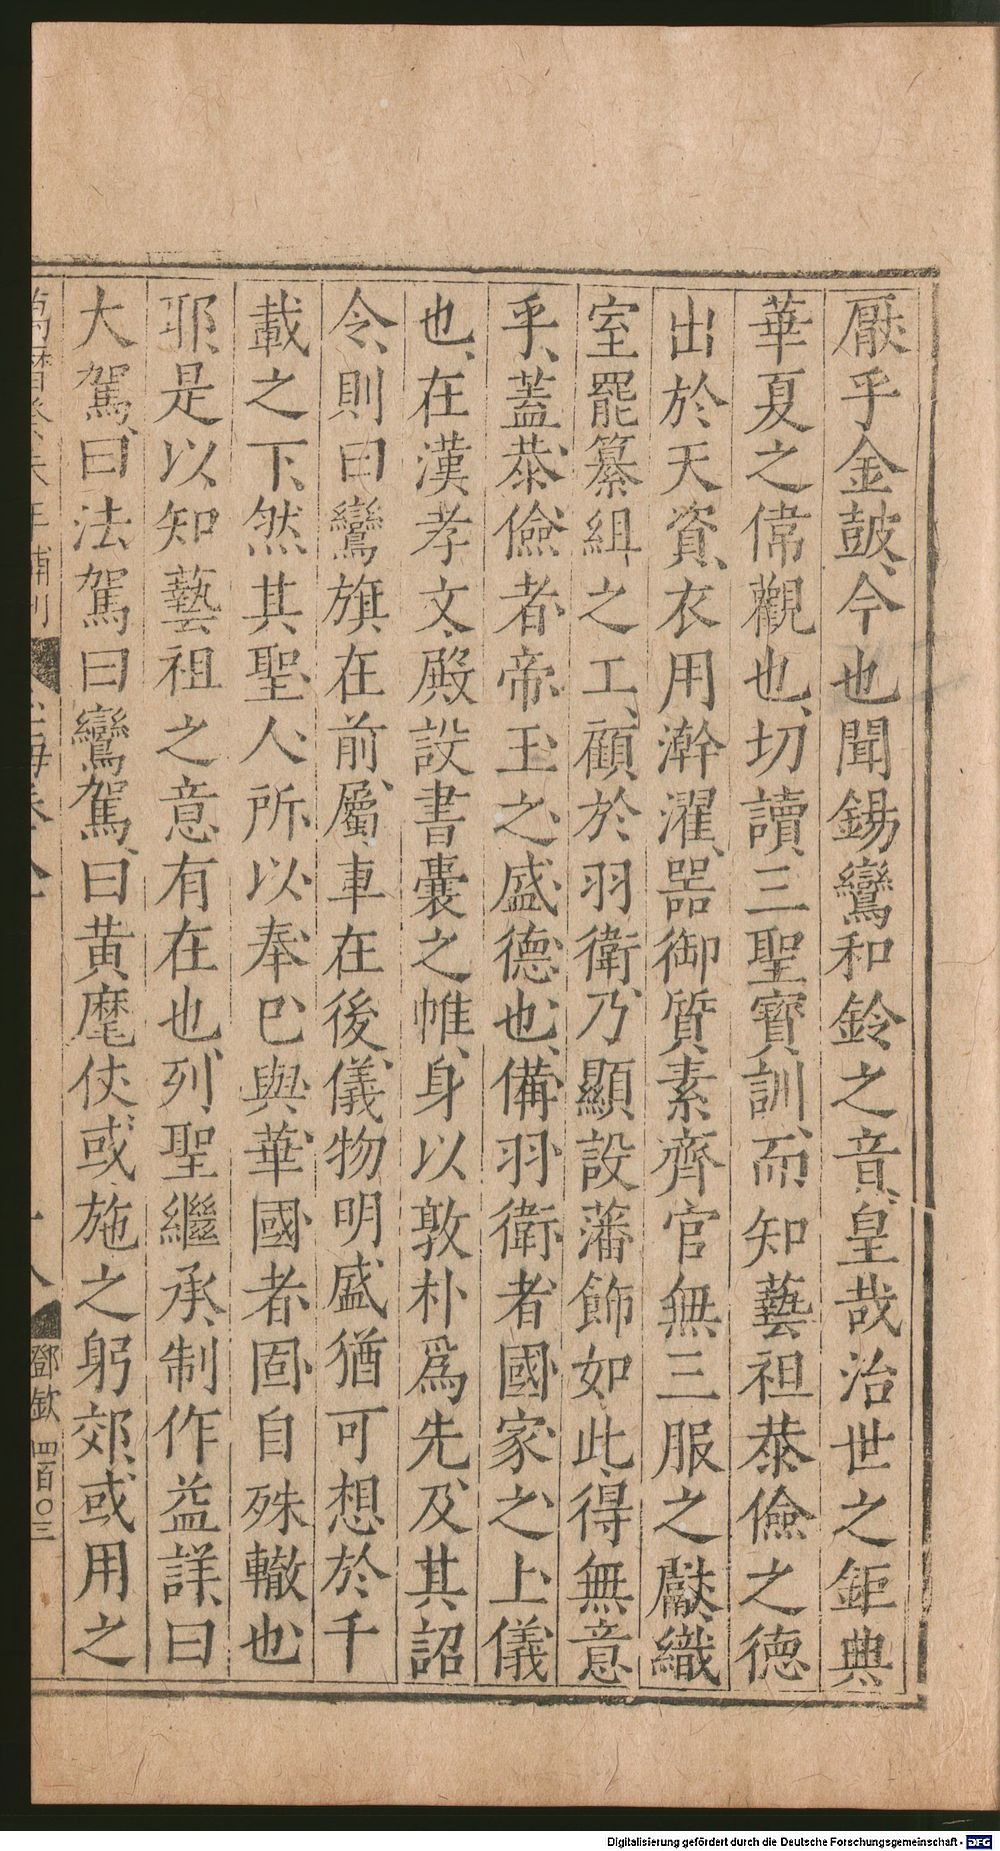 厭乎金鼓今也聞錫鸞和鈴之音皇哉治世之鉅典
華夏之偉觀也切讀三聖寶訓而知藝祖恭儉之德
出於天資衣用澣濯器御質素齊官無三服之獻織
室罷纂組之工顧於羽衛乃顯設藩飾如此得無意
乎蓋恭儉者帝王之盛德也備羽衛者國家之上儀
也在漢孝文殿設書囊之帷身以敦朴爲先及其詔
令則曰鸞旗在前屬車在後儀物明盛猶可想於千
載之下然其聖人所以奉巳與華國者固自殊轍也
耶是以知藝祖之意有在也列聖繼承制作益詳曰
大駕曰法駕曰鸞駕曰黃麾仗或施之躬郊或用之
鄧欽 四百〇三
Digitalisierung gefördert durch die Deutsche Forschungsgemeinschaft - DFG